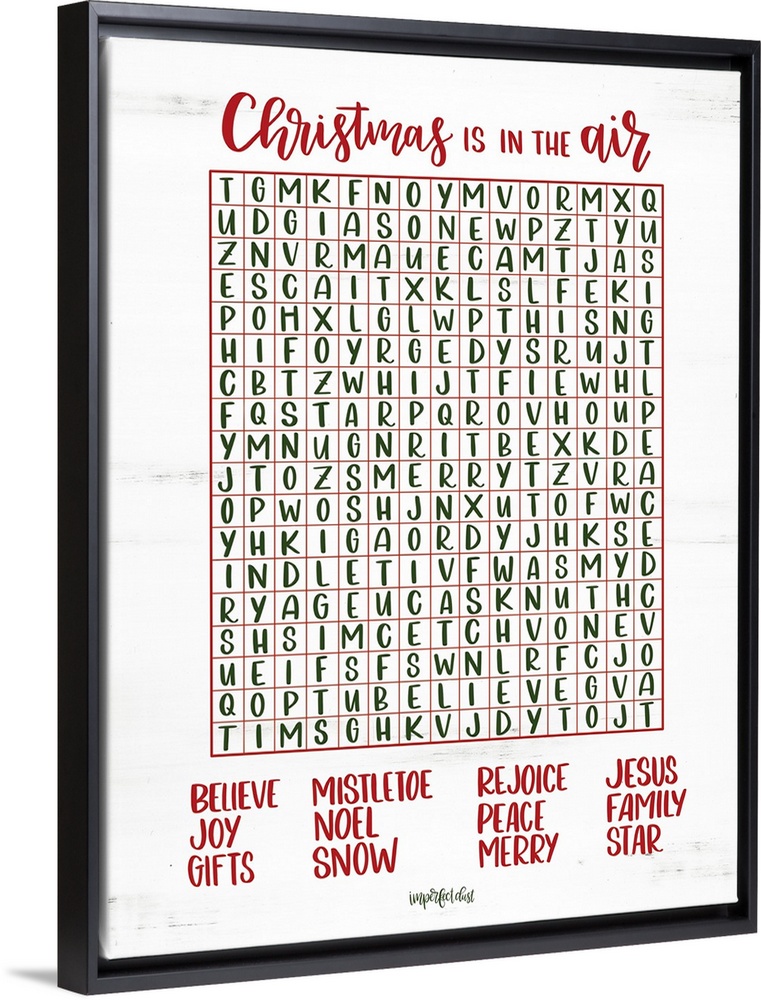 Christmas IS IN THE air
T G M K F N O Y M V O R M X Q
U D G I A S O N E W P Z T Y U
Z N V R M A U E C A M T J A S
E S C A I T X K L S L F E K I
P O H X L G L W P T H I S N G
H I F O Y R G E D Y S R U J T
C B T Z W H I J T F I E W H L
F Q S T A R P Q R O V H O U P
Y M N U G N R I T B E X K D E
J T O Z S M E R R Y T Z V R A
O P W O S H J N X U T O F W C
Y H K I G A O R D Y J H K S E
I N D L E T I V F W A S M Y D
R Y A G E U C A S K N U T H C
S H S I M C E T C H V O N E V
U E I F S F S W N L R F C J O
Q O P T U B E L I E V E G V A
T I M S G H K V J D Y T O J T
BELIEVE MISTLETOE REJOICE JESUS
JOY NOEL PEACE FAMILY
GIFTS SNOW MERRY STAR
imperfect dust